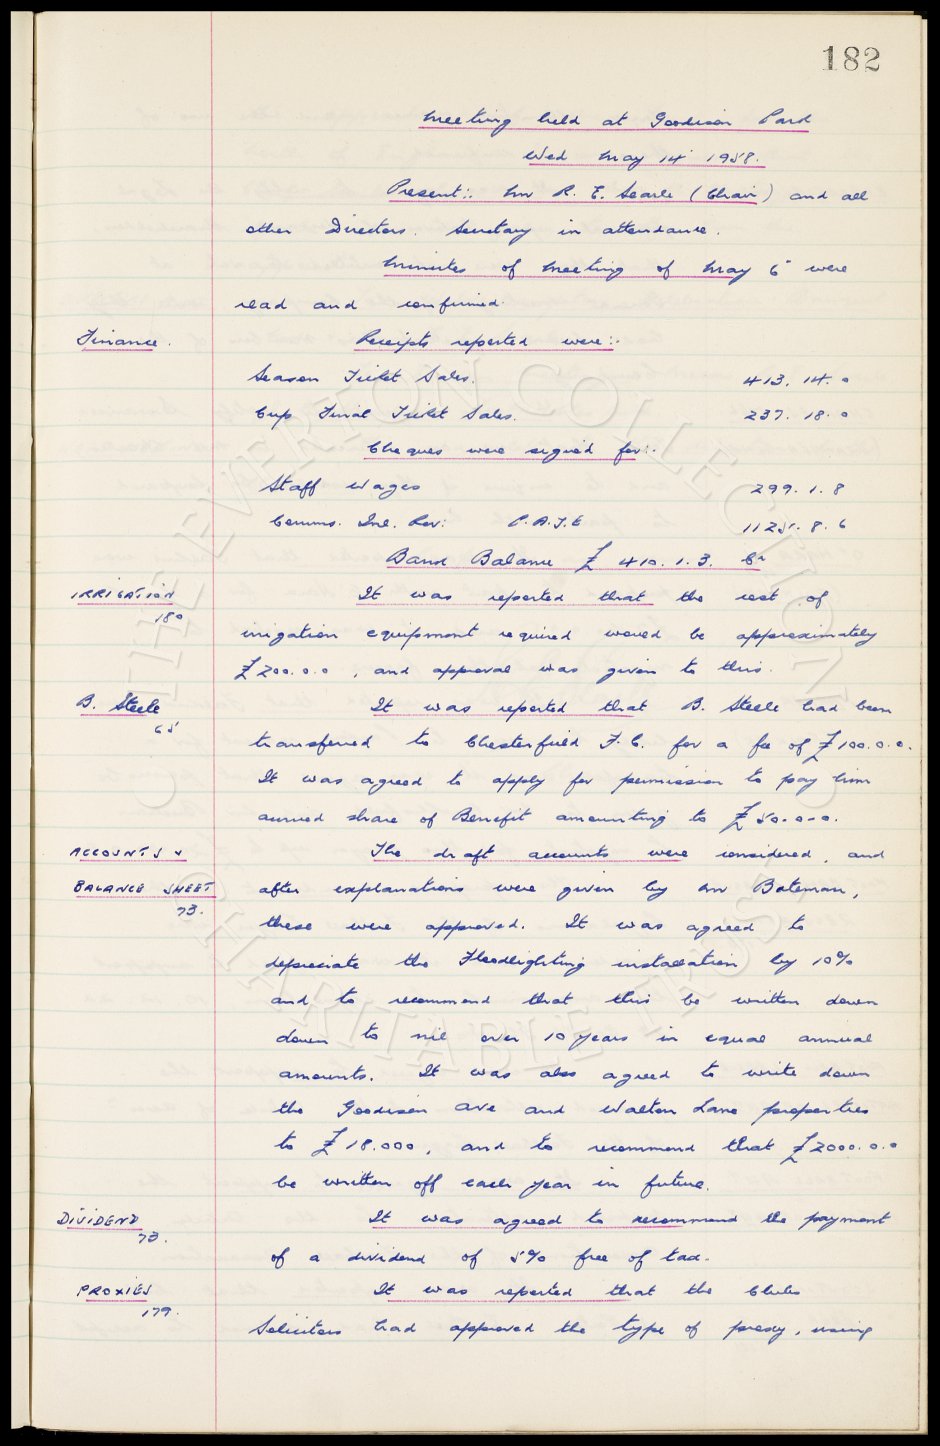 182
Meeting held at Goodison Park
Wed May 14 1958.
Present:. Mr R. E. Searle (Chair) and all
other Directors. Secretary in attendance.
Minutes of Meeting of May 6" were
read and confirmed.
Finance. Receipts reported were:.
Season Ticket Sales. 413. 14. 0
Cup Final Ticket Sales. 237. 18. 0
Cheques were signed for:.
Staff Wages 299. 1. 8
Comms. Inl. Rev: P.A.Y.E 1125. 8. 6
Bank Balance £ 410. 1. 3. Cr
IRRIGATION It was reported that the rest of
180
irrigation equipment required would be approximately
£200.0.0, and approval was given to this.
B. Steele It was reported that B. Steele had been
65
transferred to Chesterfield F.C. for a fee of £100.0.0.
It was agreed to apply for permission to pay him
accrued share of Benefit amounting to £50.0.0.
ACCOUNTS & The draft accounts were considered, and
BALANCE SHEET after explanations were given by Mr Bateman,
73.
these were approved. It was agreed to
depreciate the Floodlighting installation by 10%
and to recommend that this be written down
down to nil over 10 years in equal annual
amounts. It was also agreed to write down
the Goodison Ave and Walton Lane properties
to £18.000, and to recommend that £2000.0.0
be written off each year in future.
DIVIDEND It was agreed to recommend the payment
73.
of a dividend of 5% free of tax.
PROXIES It was reported that the Clubs
179.
Solicitors had approved the type of proxy, using
THE EVERTON COLLECTION
CHARITABLE TRUST